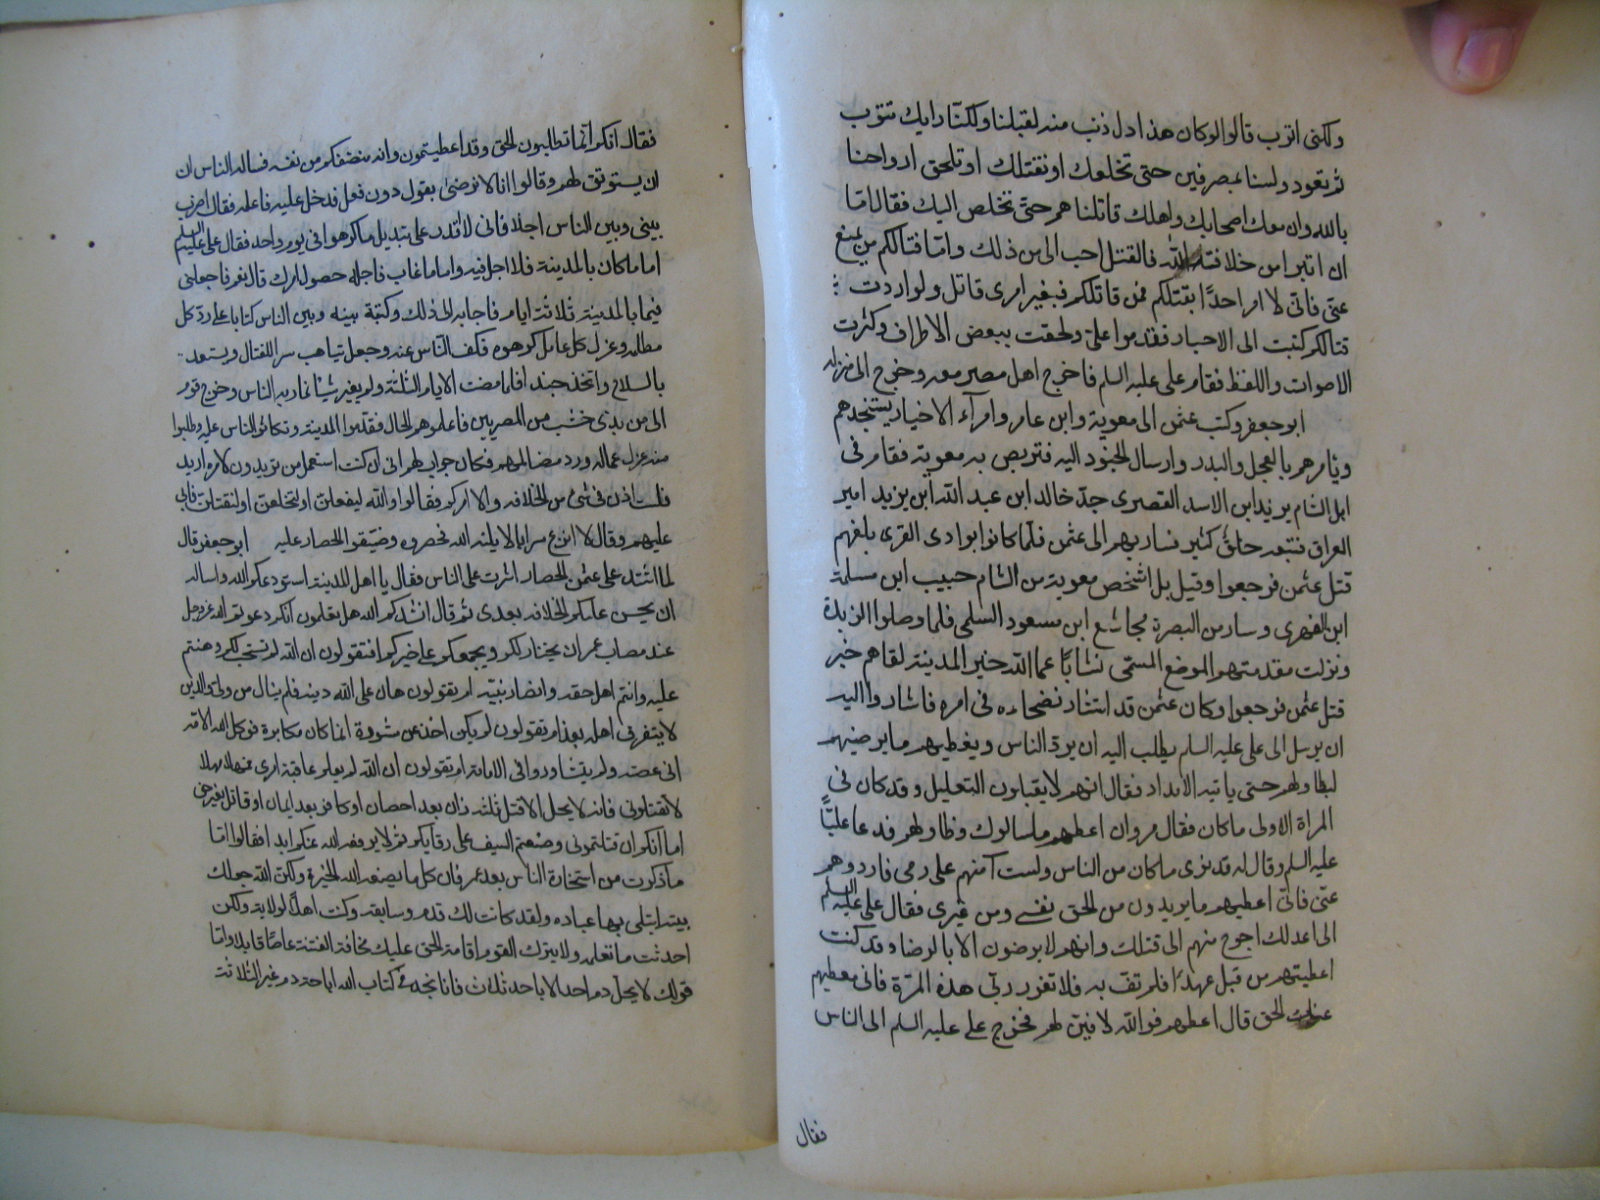 ولكنى اتوب قالوا لو كان هذا اول ذنب منه لقبلنا ولكنّا رايك تتوب
ثم يعود ولسنا بمصرفين حتى تخلعك او نقتلك او تلحق ارواحنا
بالله وان معك اصحابك واهلك قاتلناهم حتى نخلص اليك فقال امّا
ان اتبرا من خلافة الله فالقتل احب الى من ذلك وامّا قتالكم من يمنع
عنى فانّى لا امر احدًا بقتلكم فمن قاتلكم فبغير امرى قاتل ولو اردت
قتالكم كتبت الى الاجناد فقدموا علىّ ولحقت ببعض الاطراف وكثرت
الاصوات واللغط فقام على عليه السلم فاخرج اهل مصر معه وخرج الى منزله
ابو جعفر وكتب عثمن الى معوية وابن عامر وامرآء الاخيار يستنجدهم
ويامرهم بالعجل والبدر وارسال الجنود اليه فتربص به معوية فقام فى
اهل الشام يزيد ابن الاسد القصرى جدّ خالد ابن عبد الله ابن يزيد امير
العراق فتبعه خلق كثير فسار بهم الى عثمن فلّما كانوا بوادى القرى بلغهم
قتل عثمن فرجعوا وقيل بل اشخص معوية من الشام حبيب ابن مسلمة
ابن الفهرى وسار من البصرة مجاشع ابن مسعود السلمى فلما وصلوا الربذة
ونزلت مقدمتهم الموضع المسمّى نشابًا عما الله خير المدينة لقاهم خبر
قتل عثمن فرجعوا وكان عثمن قد استشار نصحاءه فى امره فاشاروا اليه
ان يرسل الى على عليه السلم يطلب اليه ان يردّ الناس ويعطيهم ما يرضيهم
ليطاولهم حتى ياتيه الامداد فقال انهم لا يقبلون التعليل وقد كان فى
المراة الاولى ما كان فقال مروان اعطهم ما سالوك وطاولهم فدعا عليًّا
عليه السلم وقال له قد ترى ما كان من الناس ولست آمنهم على دمى فارددهم
عنّى فانّى اعطيهم ما يريدون من الحق نفسے ومن غيرى فقال على عليه السلم
الى اعدلك احوج منهم الى قتلك وانهم لا يرضون الا بالرضا وقد كنت
اعطيتهم من قبل عهدًا فلم تف به فلا تغرر بى هذه المرّة فانى معطيهم
عنك الحق قال اعطهم فوالله لافينّ لهم فخرج على عليه السلم الى الناس
فقال
فقال انكم انّما تطلبون الحق وقد اعطيتمون وانه منصفكم من نفسه فساله الناس ان
ان يستوثق لهم وقالوا انا لا نرضى بقول دون فعل فدخل عليه فاعلمه فقال اضرب
بينى وبين الناس اجلا فانى لا اقدر على تبديل ما كرهوا فى يوم واحد فقال على عليه السلم
اما ما كان بالمدينة فلا اجل فيه واما ما غاب فاجله حصول امرك قال نعم فاجعلنى
فيما بالمدينة ثلاثة ايام فاجابه الى ذلك وكتبة بينه وبين الناس كتابا على ردة كل
مظلمه وعزل كل عامل كرهوه فكف النّاس عنه وجعل تياهب سرا للقتال ويستعد
بالسلاح واتخذ جندا فلما مضت الايام الثلثة ولم يغير شيئا ثار به الناس وخرج قوم
الى من بذى خشب من المصريين فاعلموهم الحال فقدموا المدينة وتكاثر الناس عليه وطلبوا
منه عزل عماله ورد مضالمهم فكان جوابه لهم انى ان كنت استعمل من تريدون لا من اريد
فلست اذن فى شئ من الخلافه والامر امركم فقالوا والله ليفعلن او لتخلعن او لنقتلن فابى
عليهم وقال لا انزع سربالا سربلنيه الله فحصروه وضيّقوا الحصار عليه ابو جعفر قال
لما اشتد على عثمن الحصار اشرت على الناس فقال يا اهل المدينة استودعكم الله واساله
ان يحسن عليكم الخلافه بعدى ثم قال انشدكم الله هل تعلمون انكم دعوتم الله عز وجل
عند مصاب عمر ان يختار لكم ويجمعكم على خيركم افتقولون ان الله لم يستجب لكم وهنتم
عليه وانتم اهل حقه وانصار نبيّه ام تقولون هان على الله دينه فلم ينال من ولى والدين
لا يتفرق اهله بعد ام تقولون لم يكن اخذ عن مشورة انما كان مكابرة فوكل الله الامة
اذ عصته ولم يتشاوروا فى الامامة ام تقولون ان الله لم يعلم عاقبة امرى فمهلا مهلا
لا تقتلونى فانه لا يحل الا قتل ثلثه زان بعد احصان او كافر بعد ايمان او قاتل بغير حق
اما انكم ان قتلتمونى وضعتم السيف على رقابكم ثم لا يرفعه الله عنكم ابدا فقالوا امّا
ما ذكرت من استخارة الناس بعد عمر فان كل ما يصنعه الله الخيرة ولكن الله جعلك
بيته ابتلى بها عباده ولقد كانت لك قدم وسابقه وكنت اهلًا لولاية ولكن
احدثت ما تعلمه ولا يترك القوم اقامة الحق عليك مخافة الفتنة عامًا قابلا وامّا
قولك لا يحل دم احد الا باحد ثلاث فانا نجد فى كتاب الله اباحة دم غير الثلاثة